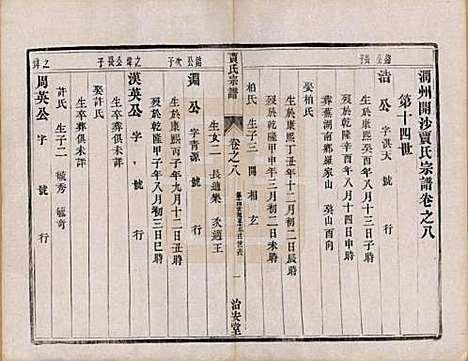 潤州開沙賈氏宗譜卷之八
第十四世
銘公長子
浩公 字洪天 號 行
生於康熙 年八月十三日子時
歿於乾隆辛酉年八月十四日申時
葬蕪湖南鄉羅家山 癸山 向
生於康熙丁丑年十月十二日 時
歿於乾隆甲申年三月初二日未時
柏氏 生子三 開 相 玄
賈氏宗譜
卷之八
一
治安堂
生女二 長適欒 次適王
銘公次子
淵公 字青源 號 行
生於康熙 子年九月十二日丑時
歿於乾隆甲子年八月初三日巳時
之緯公長子
漢英公 字 號 行
生卒葬俱未詳
娶許氏
生卒葬俱未詳
之緯 子
周英公 字 號 行
許氏 生子二 毓秀 毓奇